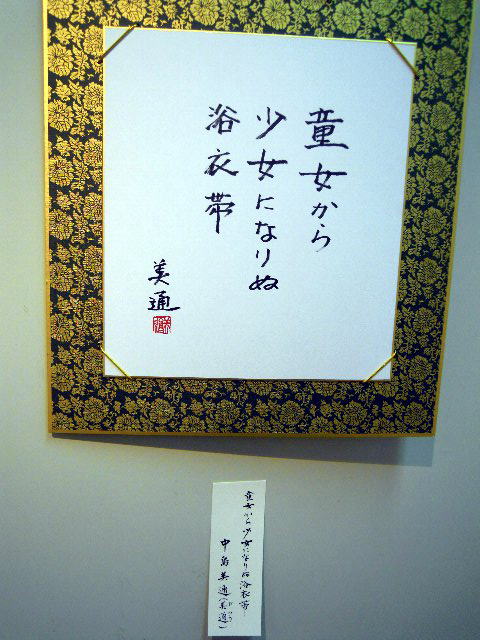 童女から
少女になりぬ
浴衣帯
美通
童女から少女になりぬ浴衣帯
中島美通(美通)